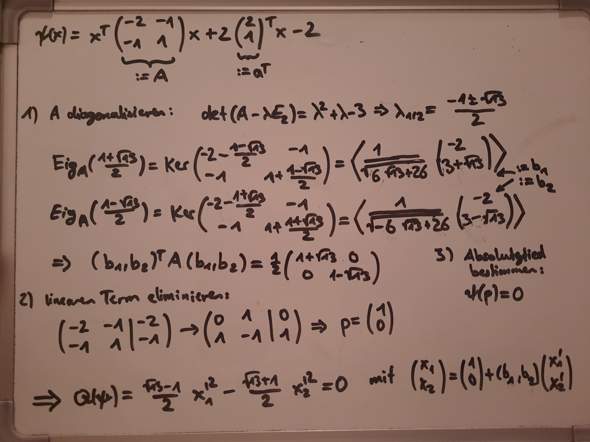 ψ(x) = xᵀ (-2 -1; -1 1) x + 2 (2; 1)ᵀ x - 2
:= A := aᵀ
1) A diagonalisieren: det(A - λE₂) = λ² + λ - 3 ⇒ λ₁/₂ = (-1 ± √13)/2
Eig_A((1+√13)/2) = Ker(-2 - (1-√13)/2 -1; -1 1 + (1-√13)/2) = ⟨ 1/√(6√13+26) (-2; 3+√13) ⟩ := b₁
Eig_A((1-√13)/2) = Ker(-2 - (1+√13)/2 -1; -1 1 + (1+√13)/2) = ⟨ 1/√(-6√13+26) (-2; 3-√13) ⟩ := b₂
⇒ (b₁, b₂)ᵀ A (b₁, b₂) = 1/2 (1+√13 0; 0 1-√13)
3) Absolutglied
bestimmen:
ψ(p) = 0
2) linearen Term eliminieren:
(-2 -1 | -2; -1 1 | -1) → (0 1 | 0; 1 -1 | 1) ⇒ p = (1; 0)
⇒ Q(ψ) = (√13-1)/2 x₁'² - (√13+1)/2 x₂'² = 0 mit (x₁; x₂) = (1; 0) + (b₁, b₂)(x₁'; x₂')